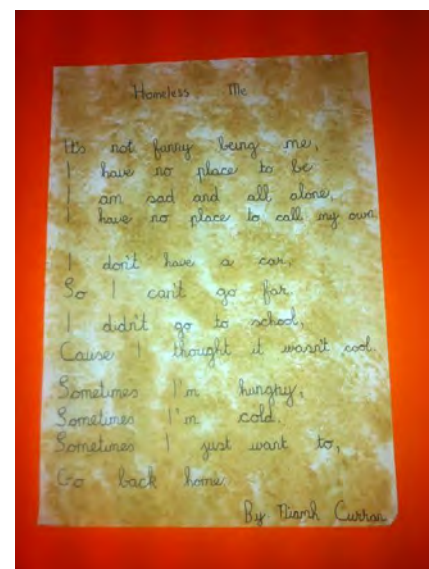 Homeless Me
It's not funny being me,
I have no place to be
I am sad and all alone,
I have no place to call my own
I don't have a car,
So I can't go far.
I didn't go to school,
Cause I thought it wasn't cool.
Sometimes I'm hungry,
Sometimes I'm cold.
Sometimes I just want to,
Go back home
By Niamh Curran